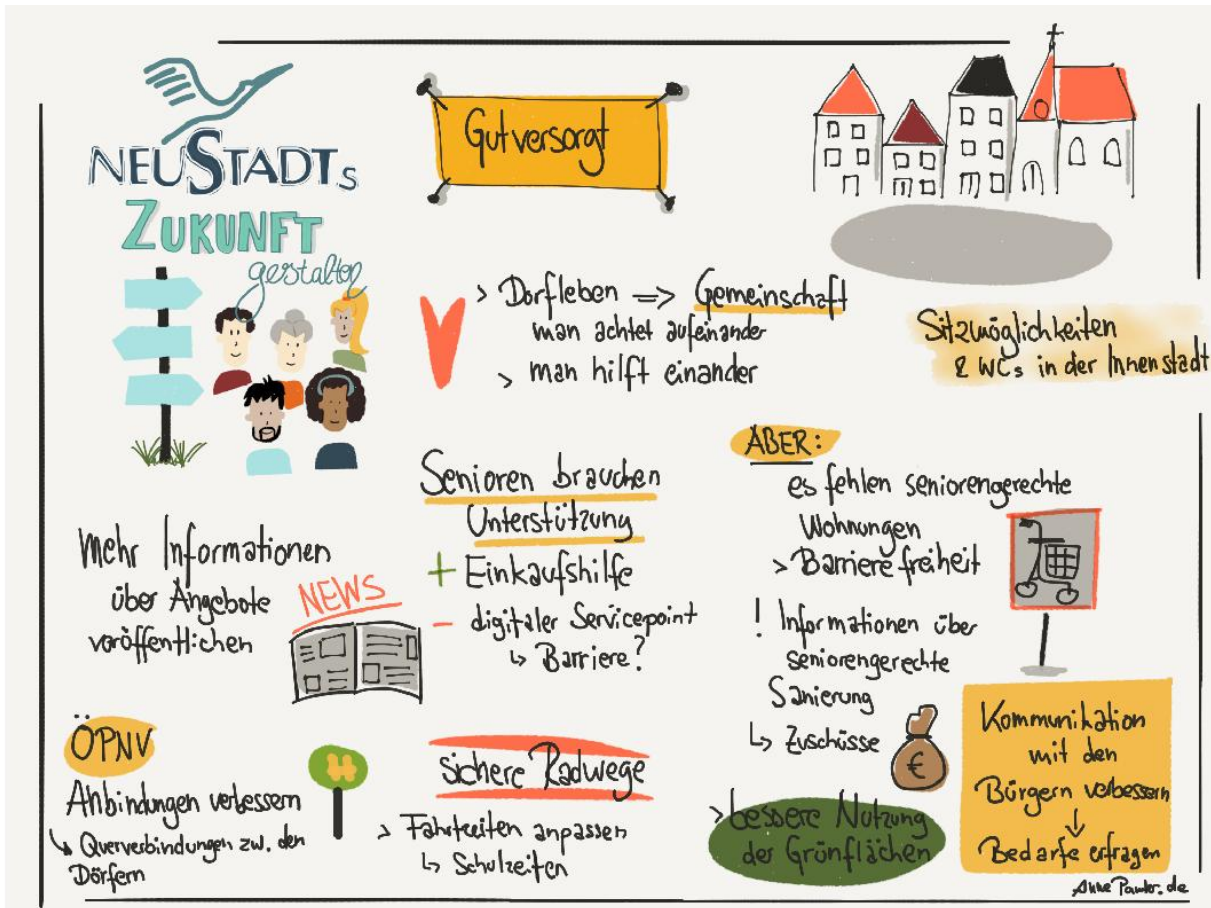 NEUSTADTs
ZUKUNFT
gestalten
Gut versorgt
> Dorfleben => Gemeinschaft
man achtet aufeinander
> man hilft einander
Sitzmöglichkeiten
& WCs in der Innenstadt
Senioren brauchen
Unterstützung
+ Einkaufshilfe
- digitaler Servicepoint
↳ Barriere?
ABER:
es fehlen seniorengerechte
Wohnungen
> Barrierefreiheit
! Informationen über
seniorengerechte
Sanierung
↳ Zuschüsse
€
Mehr Informationen
über Angebote
veröffentlichen
NEWS
ÖPNV
Anbindungen verbessern
↳ Querverbindungen zw. den
Dörfern
H
sichere Radwege
> Fahrtzeiten anpassen
↳ Schulzeiten
> bessere Nutzung
der Grünflächen
Kommunikation
mit den
Bürgern verbessern
↓
Bedarfe erfragen